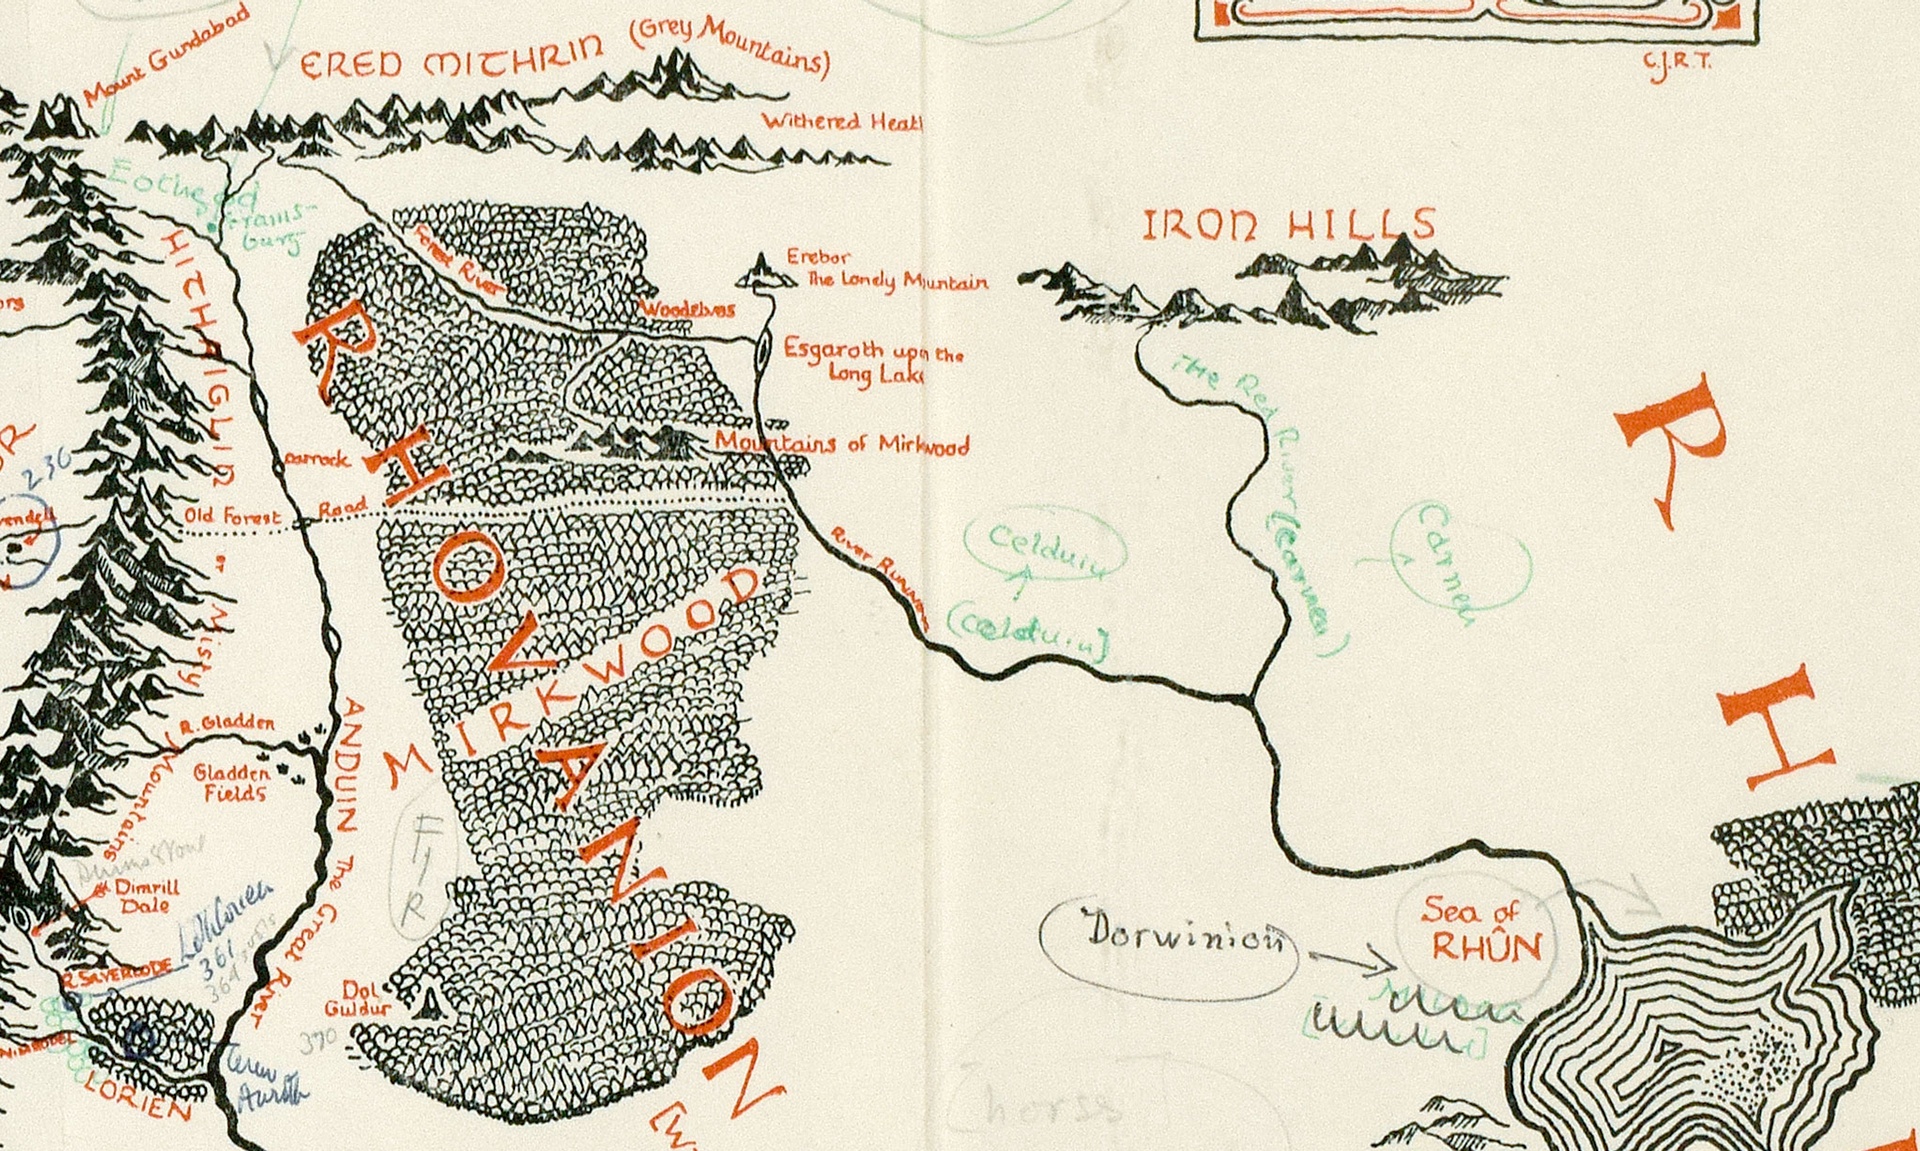 Mount Gundabad
ERED MITHRIN (Grey Mountains)
C.J.R.T.
Withered Heath
Eothéod
Frams-
burg
IRON HILLS
HITHAEGLIR or Misty Mountains
Forest River
Erebor
The Lonely Mountain
Woodelves
Esgaroth upon the
Long Lake
The Red River (Carnen)
RHOVANION
R
H
Mountains of Mirkwood
Carrock
230
Old Forest Road
River Running
Celduin
(Celduin)
Carnen
MIRKWOOD
R. Gladden
Gladden
Fields
ANDUIN The Great River
FIR
Dimrill
Dale
R. SILVERLODE
361
Dorwinion
Sea of
RHÛN
Dol
Guldur
370
NIMRODEL
LORIEN
horses
[W